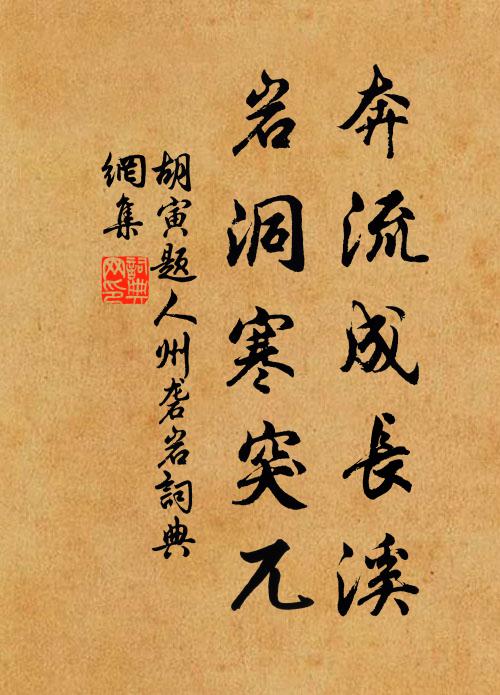 奔流成長溪
岩洞寒突兀
胡寅题人州砻岩詞典
網集
詞典
网印